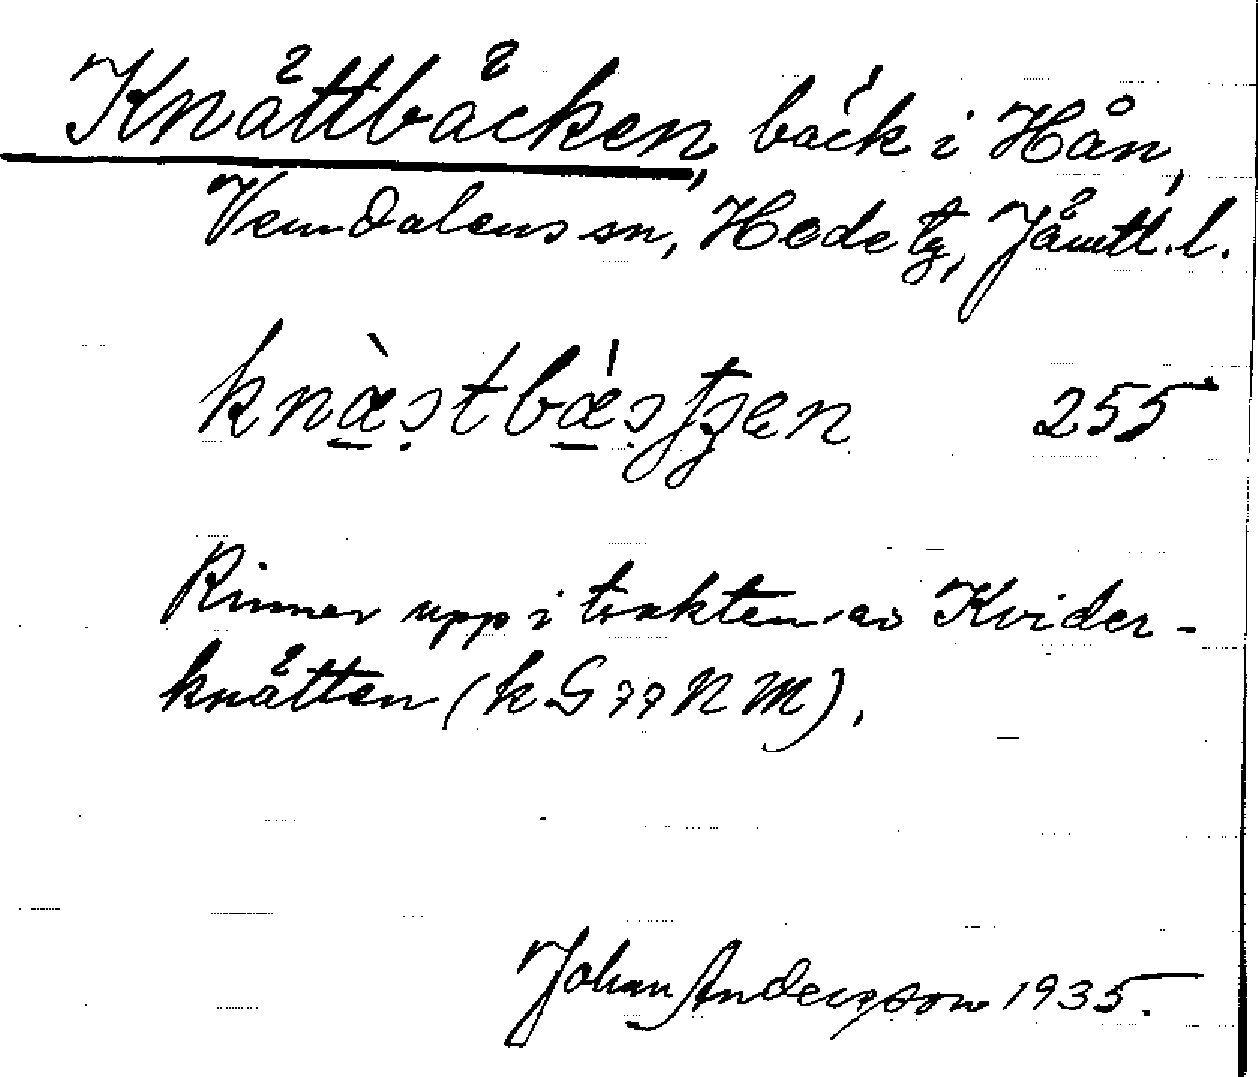 Knättbäcken, bäck i Hån,
Vemdalens sn, Hede tg, Jämtl. l.
255
Rinner upp i trakten av Kvider-
knätten (k G 77 N M).
Johan Andersson 1935.